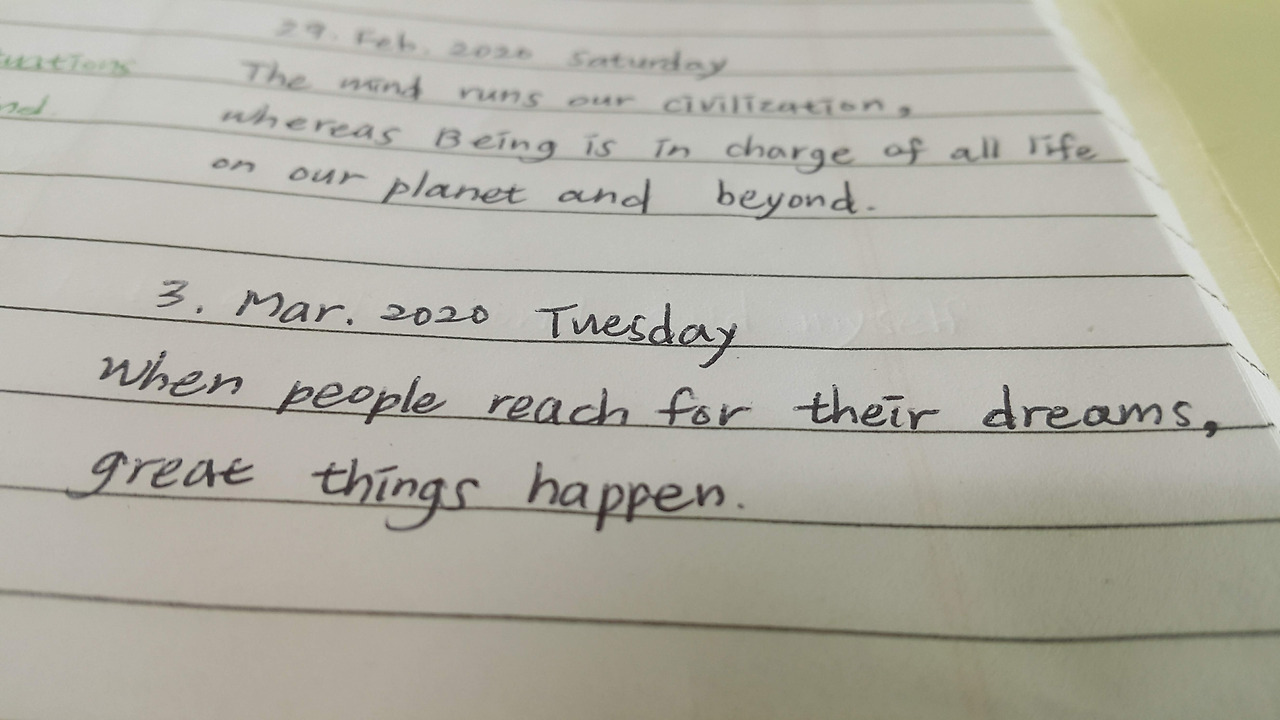 29. Feb. 2020 Saturday
The mind runs our civilization,
whereas Being is in charge of all life
on our planet and beyond.
3. Mar. 2020 Tuesday
When people reach for their dreams,
great things happen.